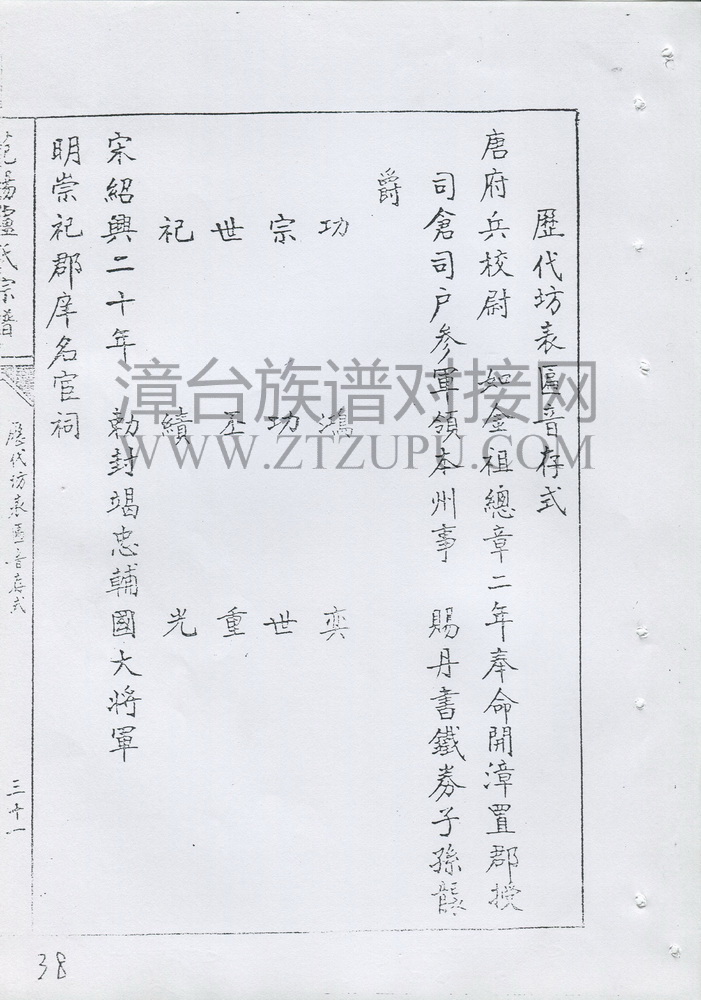 歷代坊表匾音存式
唐府兵校尉 如金祖總章二年奉命開漳置郡授
司倉司户参軍領本州事 賜丹書鐵券子孫襲
爵
功 鴻 奕
宗 功 世
世 丕 重
祀 績 光
宋紹興二十年 勅封竭忠輔國大將軍
明崇祀郡庠名宦祠
氏宗譜
歷代坊表匾音存式
三十一
38
漳台族谱对接网
WWW.ZTZUPU.COM